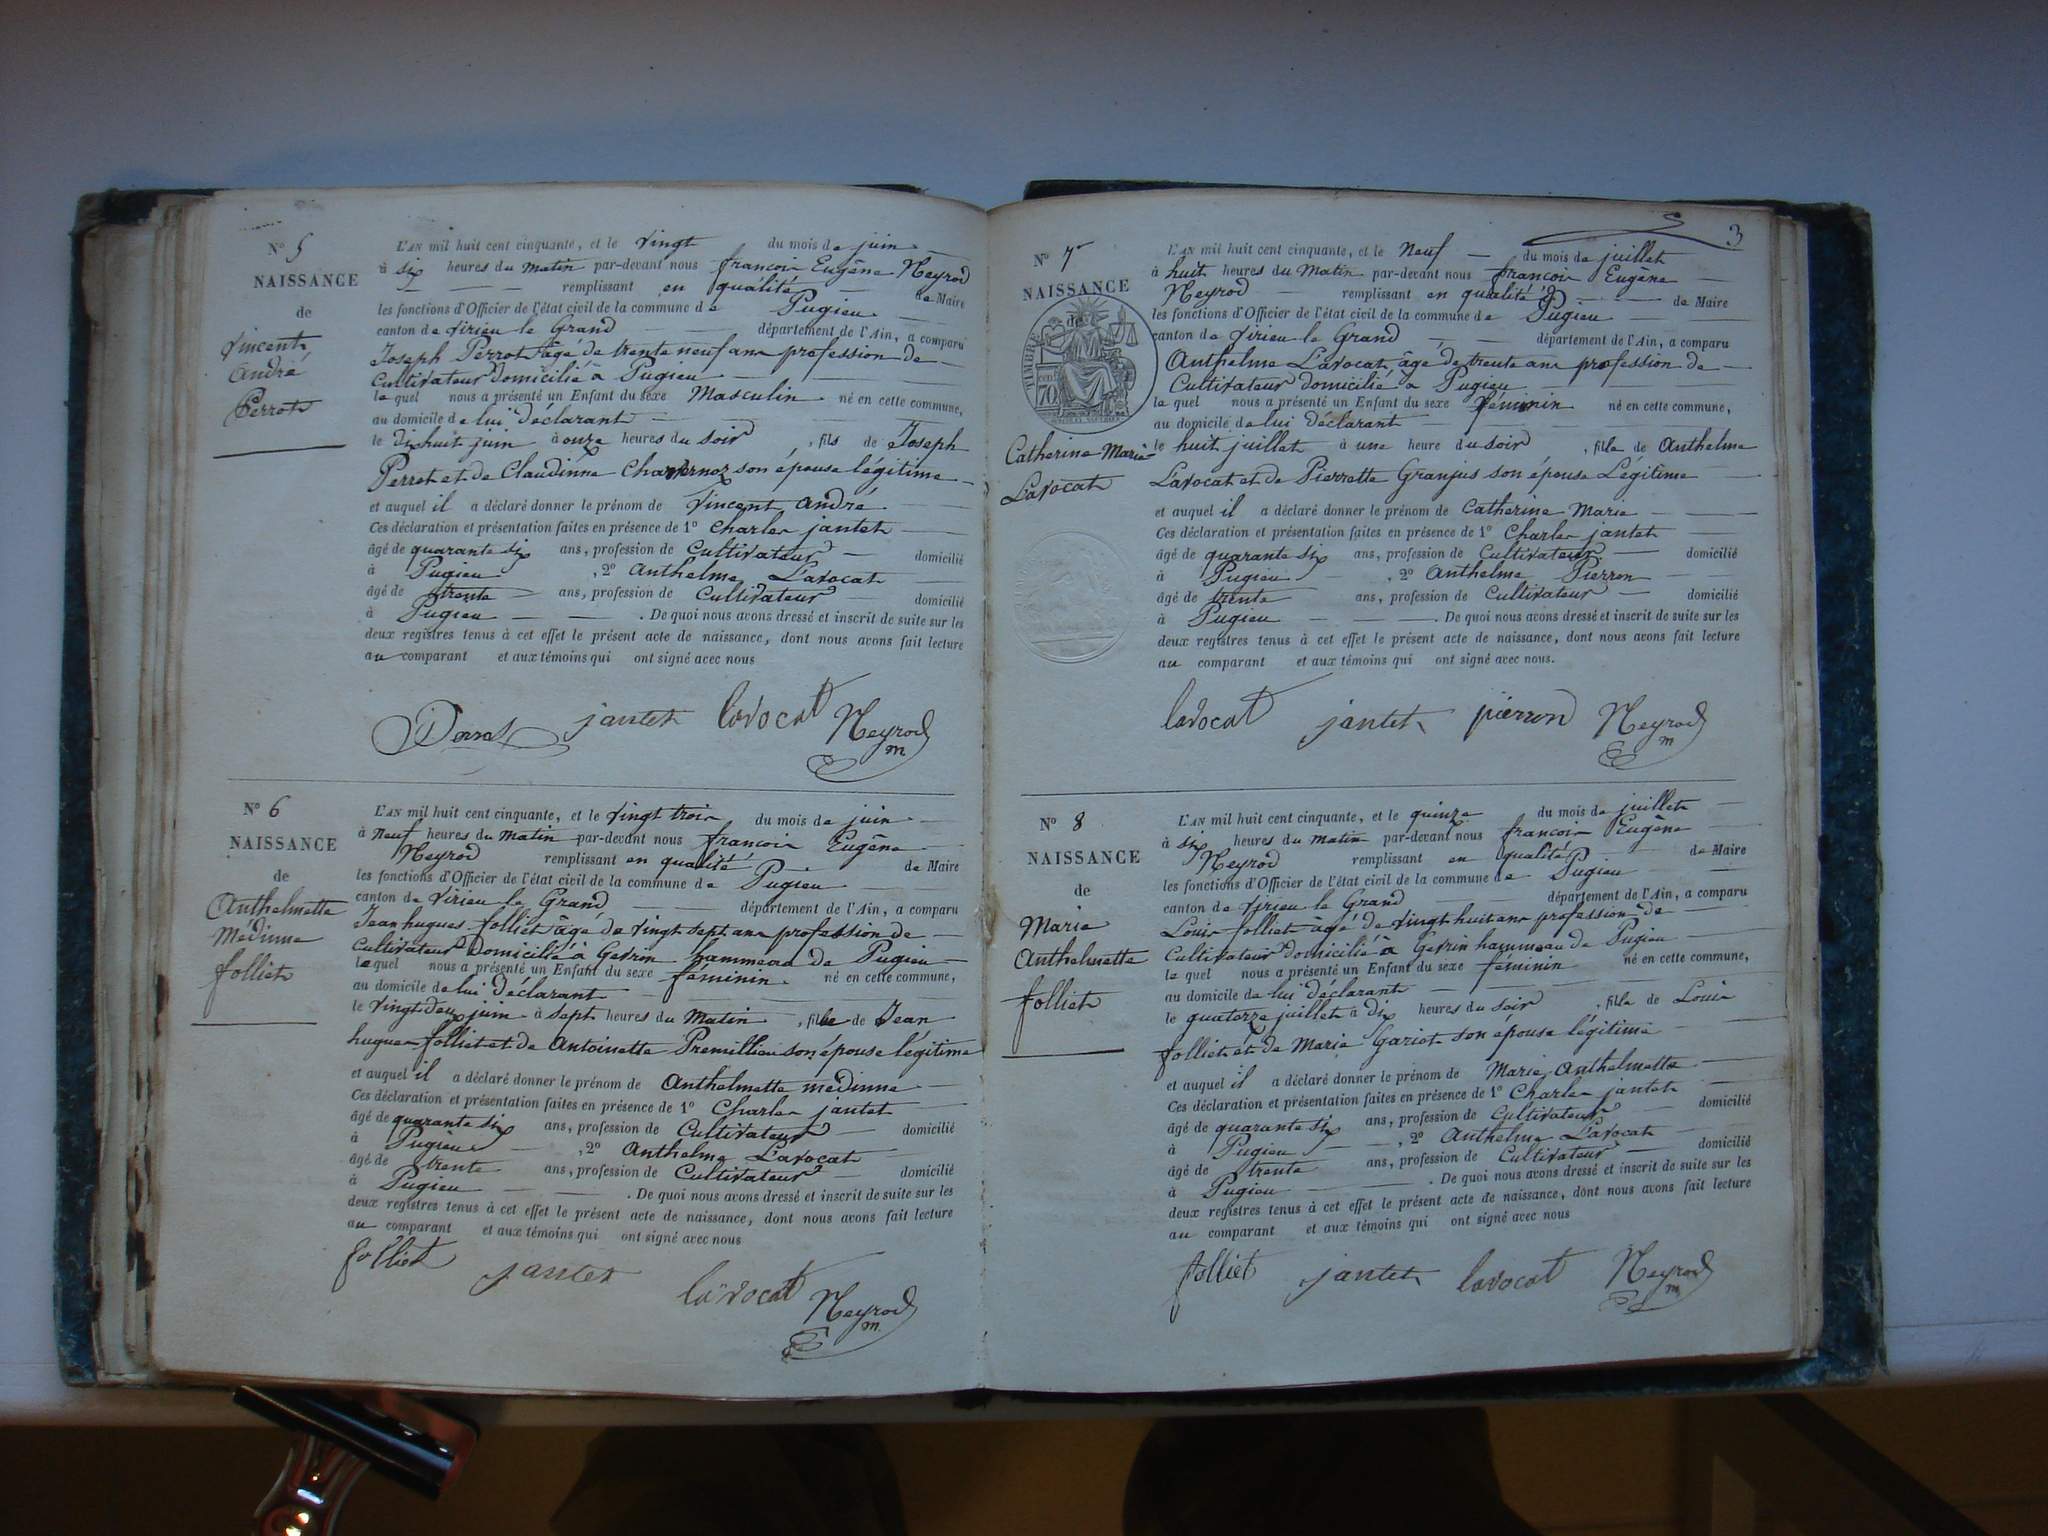 N° 5
NAISSANCE
de
Vincent
André
Perrot
L'AN mil huit cent cinquante, et le vingt du mois de juin
à six heures du matin par-devant nous françois Eugène Neyrod
remplissant en qualité de Maire
les fonctions d'Officier de l'état civil de la commune de Pugieu
canton de Virieu le Grand département de l'Ain, a comparu
Joseph Perrot âgé de trente neuf ans profession de
Cultivateur domicilié à Pugieu
lequel nous a présenté un Enfant du sexe Masculin né en cette commune,
au domicile de lui déclarant
le dixhuit juin à onze heures du soir, fils de Joseph
Perrot et de Claudinne son épouse légitime
et auquel il a déclaré donner le prénom de Vincent André
Ces déclaration et présentation faites en présence de 1° Charles jantet
âgé de quarante six ans, profession de Cultivateur domicilié
à Pugieu, 2° Anthelme Lavocat
âgé de trente ans, profession de Cultivateur domicilié
à Pugieu. De quoi nous avons dressé et inscrit de suite sur les
deux registres tenus à cet effet le présent acte de naissance, dont nous avons fait lecture
au comparant et aux témoins qui ont signé avec nous
jantet lavocat Neyrod m
N° 6
NAISSANCE
de
Anthelmette
Médinne
folliet
L'AN mil huit cent cinquante, et le vingt trois du mois de juin
à neuf heures du matin par-devant nous françois Eugène
Neyrod remplissant en qualité de Maire
les fonctions d'Officier de l'état civil de la commune de Pugieu
canton de Virieu le Grand département de l'Ain, a comparu
Jean hugues folliet âgé de vingt sept ans profession de
Cultivateur Domicilié à Gevrin hammeau de Pugieu
lequel nous a présenté un Enfant du sexe féminin né en cette commune,
au domicile de lui déclarant
le vingt deux juin à sept heures du Matin, fille de Jean
hugues folliet et de Antoinette Premillieu son épouse légitime
et auquel il a déclaré donner le prénom de Anthelmette médinne
Ces déclaration et présentation faites en présence de 1° Charles jantet
âgé de quarante six ans, profession de Cultivateur domicilié
à Pugieu, 2° Anthelme Lavocat
âgé de trente ans, profession de Cultivateur domicilié
à Pugieu. De quoi nous avons dressé et inscrit de suite sur les
deux registres tenus à cet effet le présent acte de naissance, dont nous avons fait lecture
au comparant et aux témoins qui ont signé avec nous
folliet jantet lavocat Neyrod m
3
N° 7
NAISSANCE
de
TIMBRE
70
Catherine Marie
Lavocat
L'AN mil huit cent cinquante, et le Neuf du mois de juillet
à huit heures du Matin par-devant nous françois Eugène
Neyrod remplissant en qualité de Maire
les fonctions d'Officier de l'état civil de la commune de Pugieu
canton de Virieu le Grand département de l'Ain, a comparu
Anthelme Lavocat âgé de trente ans profession de
Cultivateur domicilié à Pugieu
lequel nous a présenté un Enfant du sexe féminin né en cette commune,
au domicile de lui déclarant
le huit juillet à une heure du soir, fille de Anthelme
Lavocat et de Pierrette son épouse Légitime
et auquel il a déclaré donner le prénom de Catherine Marie
Ces déclaration et présentation faites en présence de 1° Charles jantet
âgé de quarante six ans, profession de Cultivateur domicilié
à Pugieu, 2° Anthelme Pierron
âgé de trente ans, profession de Cultivateur domicilié
à Pugieu. De quoi nous avons dressé et inscrit de suite sur les
deux registres tenus à cet effet le présent acte de naissance, dont nous avons fait lecture
au comparant et aux témoins qui ont signé avec nous.
lavocat jantet pierron Neyrod m
N° 8
NAISSANCE
de
Marie
Anthelmette
folliet
L'AN mil huit cent cinquante, et le quinze du mois de juillet
à six heures du matin par-devant nous françois Eugène
Neyrod remplissant en qualité de Maire
les fonctions d'Officier de l'état civil de la commune de Pugieu
canton de Virieu le Grand département de l'Ain, a comparu
Louis folliet âgé de vingt huit ans profession de
Cultivateur domicilié à Gevrin hammeau de Pugieu
lequel nous a présenté un Enfant du sexe féminin né en cette commune,
au domicile de lui déclarant
le quatorze juillet à dix heures du soir, fille de Louis
folliet et de Marie Gariot son épouse légitime
et auquel il a déclaré donner le prénom de Marie Anthelmette
Ces déclaration et présentation faites en présence de 1° Charles jantet
âgé de quarante six ans, profession de Cultivateur domicilié
à Pugieu, 2° Anthelme Lavocat
âgé de trente ans, profession de Cultivateur domicilié
à Pugieu. De quoi nous avons dressé et inscrit de suite sur les
deux registres tenus à cet effet le présent acte de naissance, dont nous avons fait lecture
au comparant et aux témoins qui ont signé avec nous
folliet jantet lavocat Neyrod m